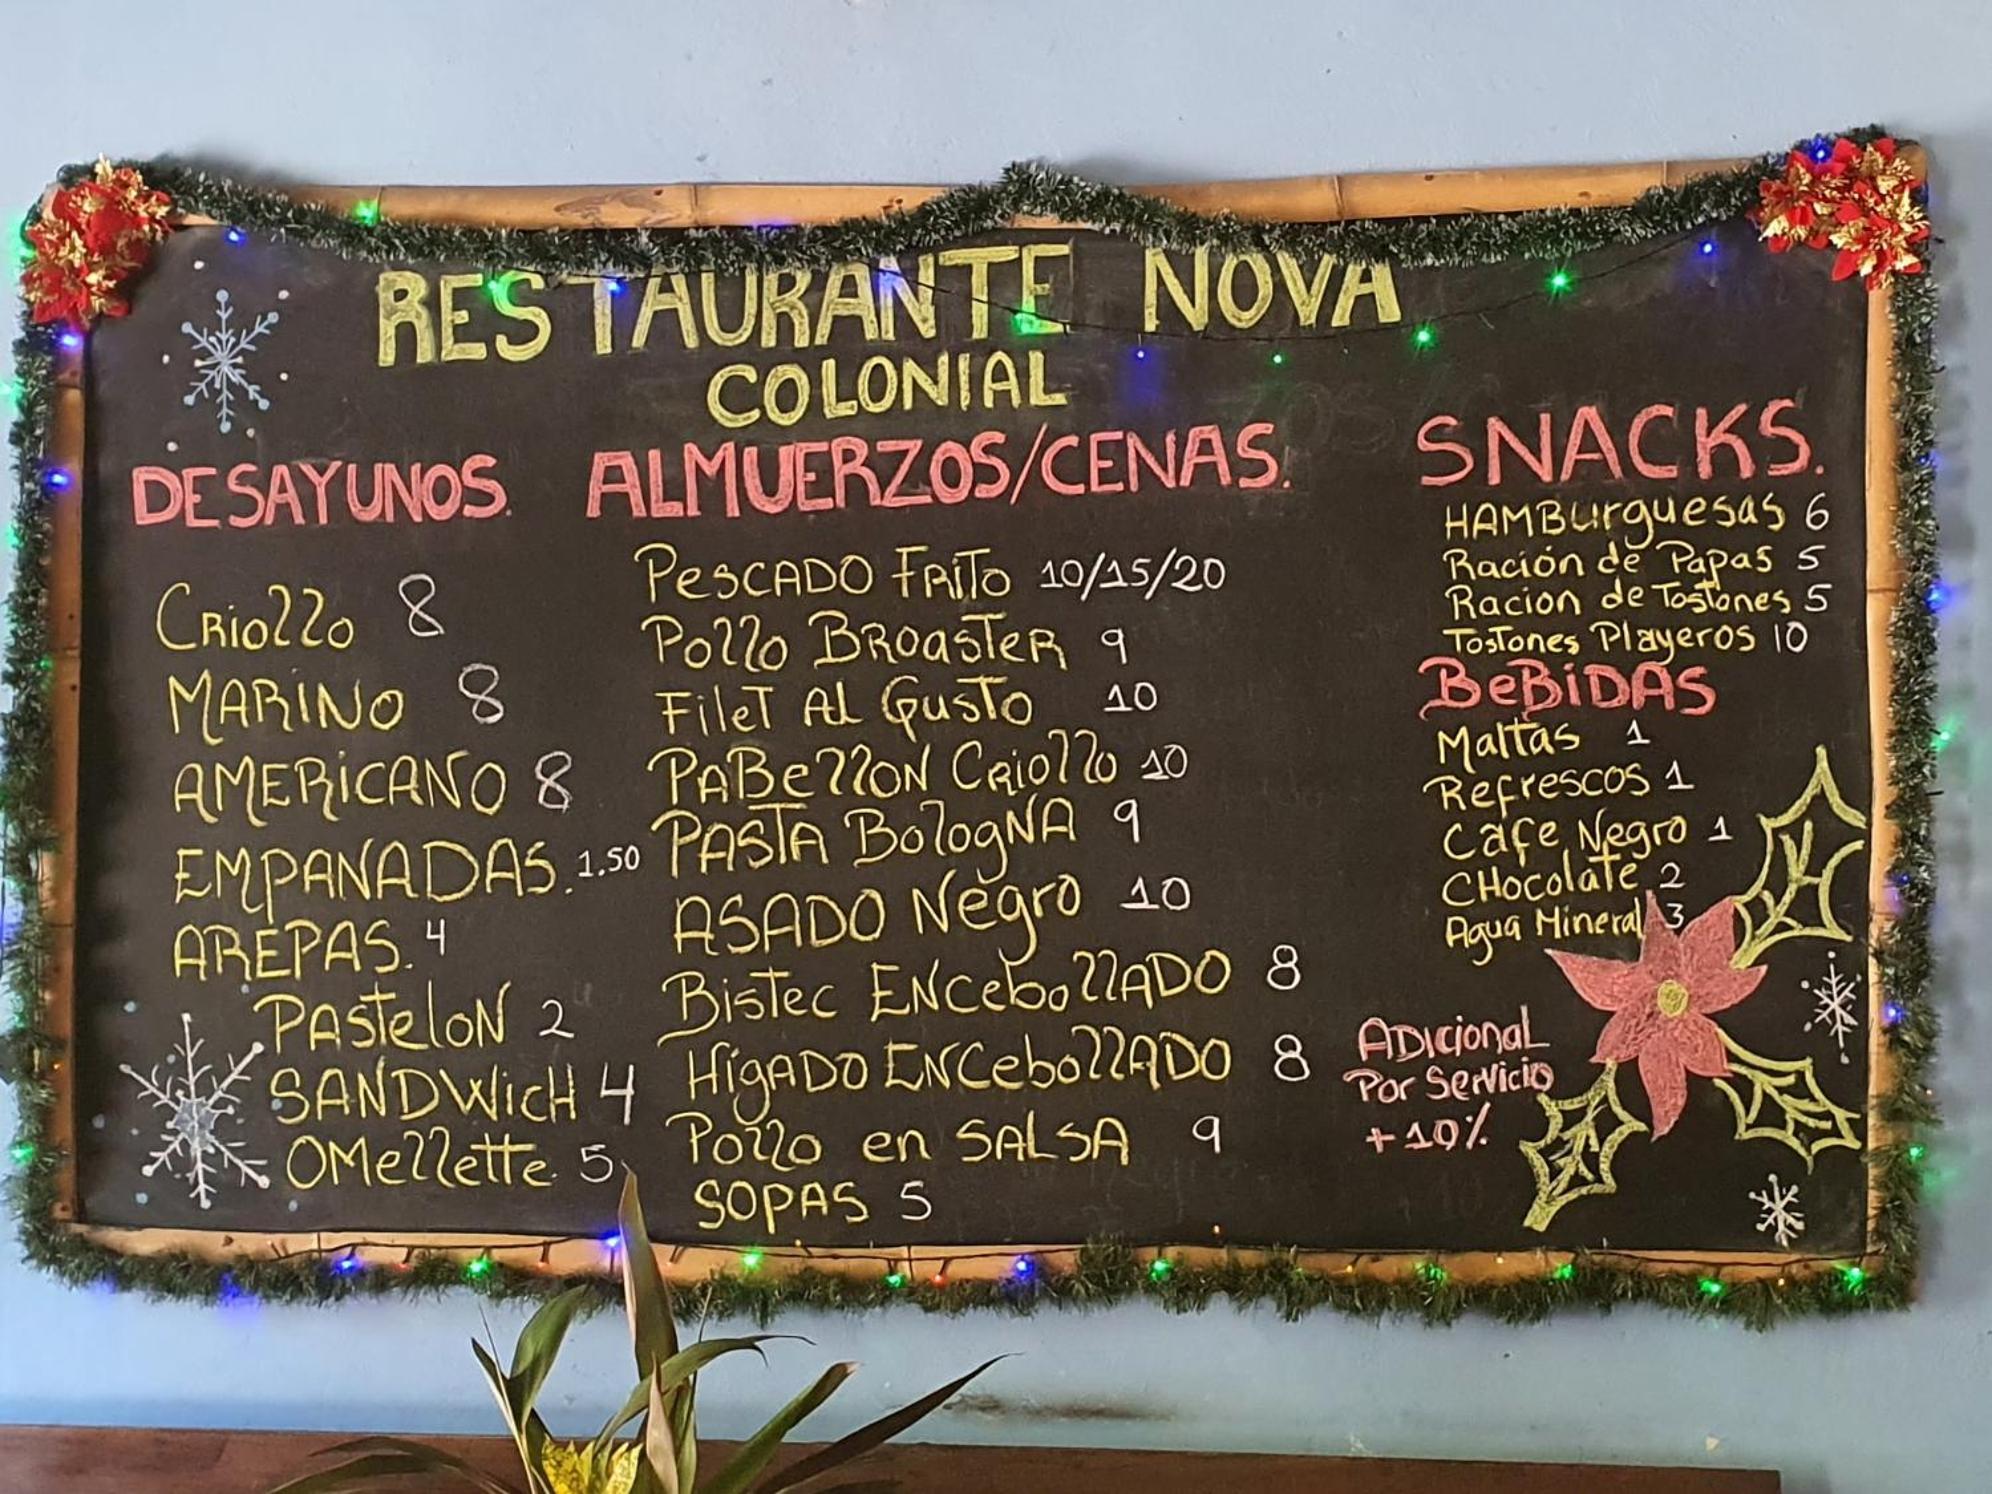 RESTAURANTE NOVA
COLONIAL
DESAYUNOS.
Criollo 8
MARiNO 8
AMERiCANO 8
EMPANADAS. 1.50
AREPAS. 4
PAStelON 2
SANDWicH 4
OMellette. 5
ALMUERZOS/CENAS.
PESCADO FRiTO 10/15/20
Pollo BROaSTER 9
FileT Al GuSTO 10
PABellON CRiollo 10
PASTA BologNA 9
ASADO Negro 10
Bistec ENCebollADO 8
HígADO ENCebollADO 8
Pollo en SALSA 9
SOPAS 5
SNACKS.
HAMBurguesas 6
Ración de Papas 5
Racion de Tostones 5
Tostones Playeros 10
BeBiDAS
Maltas 1
Refrescos 1
Cafe Negro 1
CHocolate 2
Agua Mineral 3
ADicionaL
Por Servicio
+10%